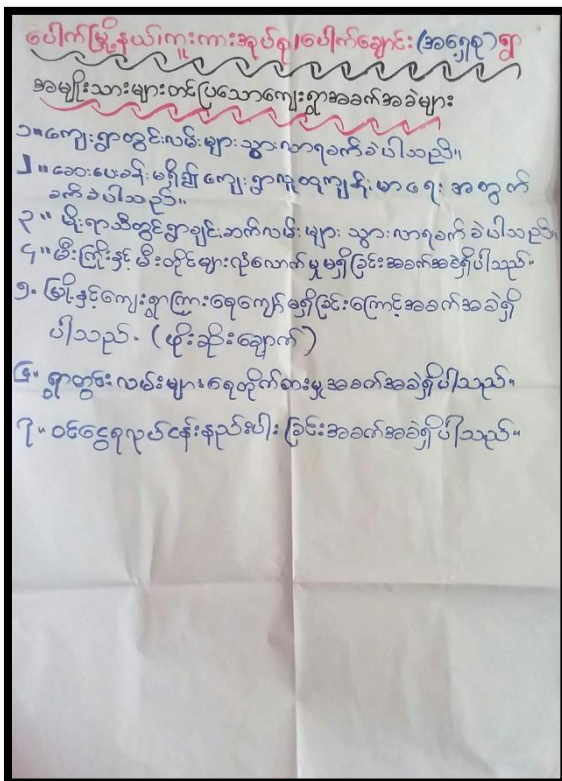 ပေါက်မြို့နယ်၊ကူးကားအုပ်စု၊ပေါက်ချောင်း(အရှေ့စု)ရွာ
အမျိုးသားများတင်ပြသောကျေးရွာအခက်အခဲများ
၁။ ကျေးရွာတွင်းလမ်းများသွားလာရခက်ခဲပါသည်။
၂။ ဆေးပေးခန်းမရှိ၍ ကျေးရွာလူထုကျန်းမာရေး အတွက်
ခက်ခဲပါသည်။
၃။ မိုးရာသီတွင်ရွာချင်းဆက်လမ်းများ သွားလာရခက်ခဲပါသည်။
၄။ မီးကြိုးနှင့် မီးတိုင်များလုံလောက်မှုမရှိခြင်းအခက်အခဲရှိပါသည်။
၅. မြို့နှင့်ကျေးရွာကြားရေကျော်မရှိခြင်းကြောင့်အခက်အခဲရှိ
ပါသည်. (ဖိုးဆိုးချောက်)
၆။ ရွာတွင်းလမ်းများရေတိုက်စားမှုအခက်အခဲရှိပါသည်။
၇။ ဝင်ငွေရလုပ်ငန်းနည်းပါးခြင်းအခက်အခဲရှိပါသည်။